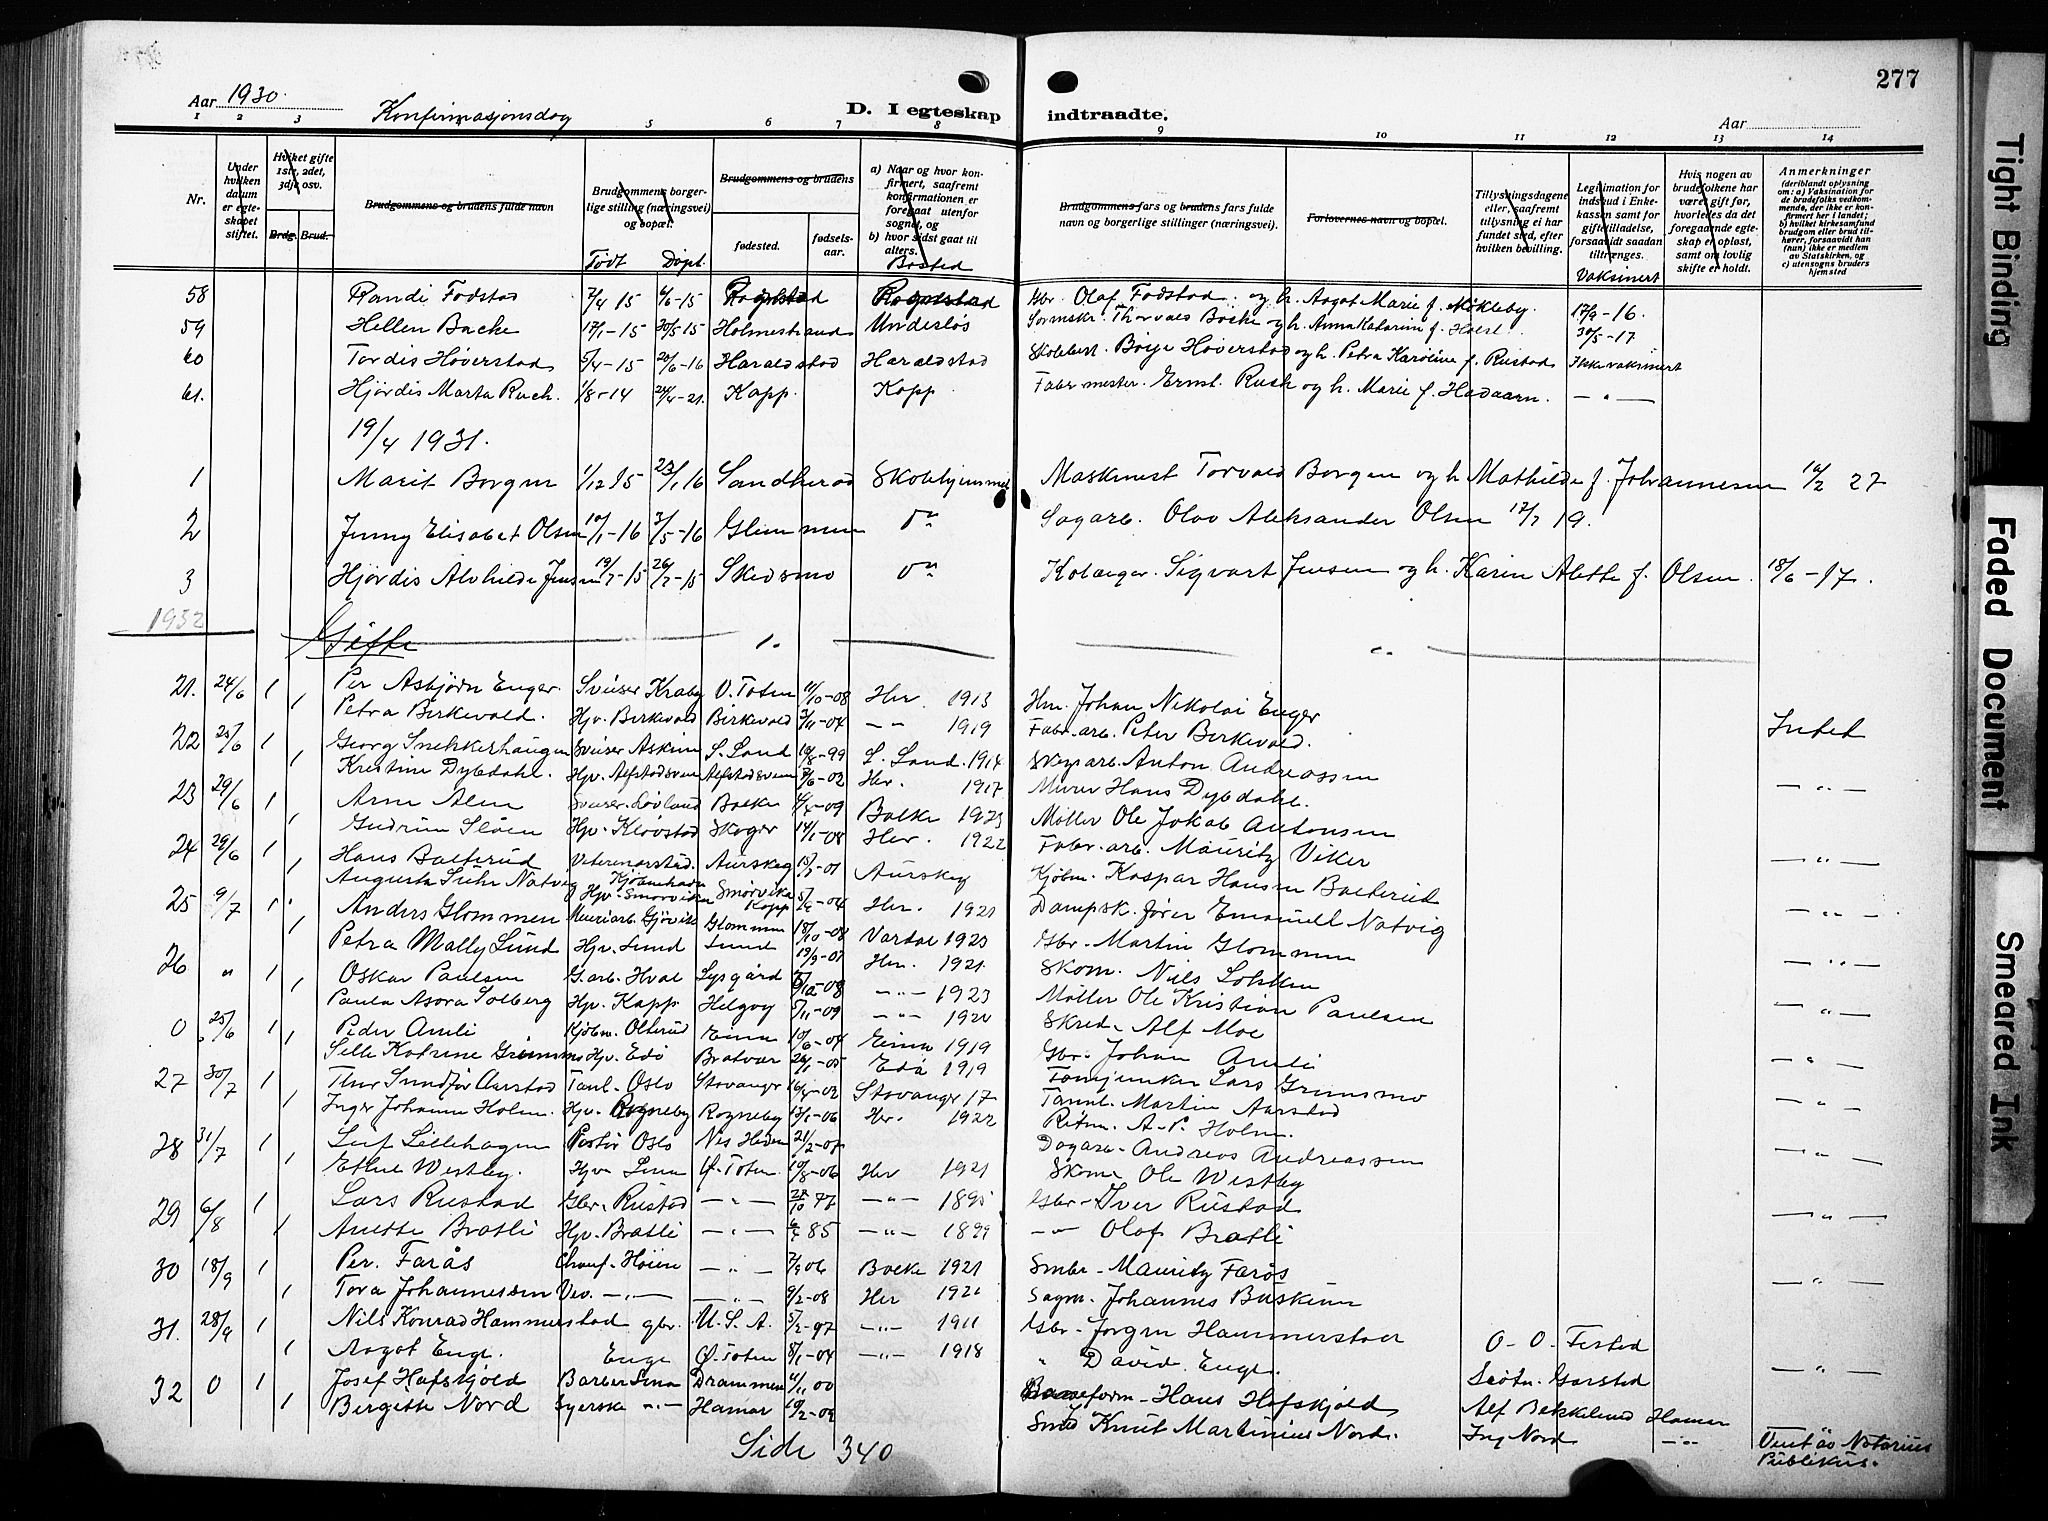 277
Aar 1930.
Konfirmasjonsdag
D. I egteskap indtraadte.
Aar
1 2 3 5 6 7 8 9 10 11 12 13 14
Nr.
Under hvilken datum er egteskapet stiftet.
Hvilket gifte 1ste, 2det, 3dje osv.
Brdg. Brud.
Brudgommens og brudens fulde navn
Brudgommens borgerlige stilling (næringsvei) og bopæl.
Født Døpt.
Brudgommens og brudens
fødested.
fødselsaar.
a) Naar og hvor konfirmert, saafremt konfirmationen er foregaat utenfor sognet, og
b) hvor sidst gaat til alters.
Bosted
Brudgommens fars og brudens fars fulde navn og borgerlige stillinger (næringsvei).
Forlovernes navn og bopæl.
Tillysningsdagene eller, saafremt tillysning ei har fundet sted, efter hvilken bevilling.
Legitimation for indskud i Enkekassen samt for giftetilladelse, forsaavidt saadan tiltrænges.
Vaksinert
Hvis nogen av brudefolkene har været gift før, hvorledes da det foregaaende egteskap er opløst, samt om lovlig skifte er holdt.
Anmerkninger
(deriblandt oplysning om: a) Vaksination for de brudefolks vedkommende, der ikke er konfirmert her i landet; b) hvilket kirkesamfund brudgom eller brud tilhører, forsaavidt han (hun) ikke er medlem av Statskirken, og c) utensogns bruders hjemsted
58 Randi Fodstad 2/4 15 6/6-15 Gbr. Olaf Fodstad og h. Aagot Marie f. Mökleby. 17/9-16.
59 Hellen Backe 17/1-15 30/5 15 Holmestrand Thorvald Backe og h. Anna Katarine f. Holst. 30/5-17
60 Tordis Höverstad 5/4-15 20/6-16 Haraldstad Haraldstad Skolebest. Börje Höverstad og h. Petra Karoline f. Rustad Ikke vaksinert
61. Hjördis Marta Ruch. 1/8-14 24/4-21. Kapp. Kapp Fabr. mester. Ernst Rusk og h. Marie f. - " -
19/4 1931.
1 Marit Borgen 1/12 15 23/1 16 Sandherad Skolehjemmet Maskmest Torvald Borgen og h Mathilde f. Johannesen 10/2 27
2 Jenny Elisabet Olsen 10/1-16 3/5-16 Glemmen Sagarb. Olav Aleksander Olsen 17/7 19.
3 Hjördis Alvhilde Jensen 19/7-15 26/7-15 Skedsmo Sigvart Jensen og h. Karin Alette f. Olsen. 18/6-17.
1932
Gifte
21. 24/6 1 Per Asbjörn Enger. Sveiser Kraby V. Toten 11/10-08 Her 1913 Hm. Johan Nikolai Enger
1 Petra Birkevold. Hjv. Birkevold Birkevold 3/11-04 - " - 1919 Fabr. arb. Peter Birkevold. Intet
22 25/6 1 Georg Snekkerhaugen Sveiser Askim S. Land 10/8-99 S. Land. 1914 Skogsarb. Anton Andreassen
1 Kristine Dybdahl. Hjv. Alfstadsveen Alfstadsveen 7/6-02 Her. 1917 Murer Hans Dybdahl. - " -
23 29/6 1 Arne Alm Sveiser Lövland Balke 4/4-09 Balke 1923 Möller Ole Jokab Antonsen
1 Gudrun Slöen Hjv. Klövstad Skoger 14/1-08 Her. 1922 Fabr. arb. Mauritz Viker - " -
24 29/6 1 Hans Balterud Veterinærstud. Aurskog 15/3-01 Aurskog Kjøbm. Kaspar Hansen Balterud
Augusta Suhr Natvig Kjöbenhavn Hjv. Smörvika Smörvika Kapp 5/4-04 Her. 1921 Dampsk. förer Emanuell Natvig - " -
25 9/7 1 Anders Glommen Murerarb. Gjövik Glommen 18/10-08 Vardal 1923 Gbr. Martin Glommen
Petra Mally Lund Hjv. Lund Lund 19/9-07 Her. 1921. Skom. Nils Lökken - " -
26 " 1 Oskar Paulsen G. arb. Hval Lysgård 5/12-08 - " - 1923 Möller Ole Kristian Paulsen
1 Paula Asora Solberg Hjv. Kapp Helgøy 5/11-09 - " - 1920 Skred. Alf Moe - " -
0 25/6 1 Peder Amli Kjøbm. Olterud Eina 10/6-04 Eina 1919 Gbr. Johan Amli
1 Katrine Hjv. Edö Bratvær 26/1-05 Edö 1919 Lars Grimsmo - " -
27 30/7 1 Sundför Aarstad Tanl. Oslo Stavanger 16/4-02 Stavanger 17 Tannl. Martin Aarstad
1 Inger Johanne Holm. Hjv. Rogneby Rogneby 13/1-06 Her. 1922 Ritm. A. P. Holm.
28 31/7 1 Leif Lillehagen Oslo 21/2-07 Dagarb. Andreas Andreassen
1 Ethel Westby. Hjv. Lena Ø. Toten 10/8-06 Her 1921 Skom. Ole Westby - " -
29 6/8 1 Lars Rustad Gbr. Rustad - " - 28/10 77 - " - 1895 Gbr. Iver Rustad
1 Anette Bratli Hjv. Bratli - " - 6/4 85 - " - 1899 - " - Olaf Bratli - " -
30 18/9 1 Per. Farås Chauf. Höien - " - 7/9 06 Balke 1921 Smbr. Mauritz Farås
1 Tora Johannessen Vev. - " - - " - 9/2-08 Her 1922 Sagm. Johannes Buskerun - " -
31. 28/9 1 Nils Konrad Hammerstad gbr. U. S. A. 5/2-97 - " - 1911 Gbr. Jörgen Hammerstad O. O. Festad
1 Aagot Enge. Enge Ø. Toten 8/1-04 - " - 1918 " David Enge. Garstad - " -
32 0 1 Josef Hafskjold Barber Lena Drammen 4/11 00 Hans Hafskjold Alf Bekkelund Hamar
1 Bergette Nord Syerske - " - Hamar 10/2-02 Smed Knut Martinius Nord. Ing Nord - " - Viet av Notarius Publikus.
Side 340
Tight Binding
Faded Document
Smeared Ink